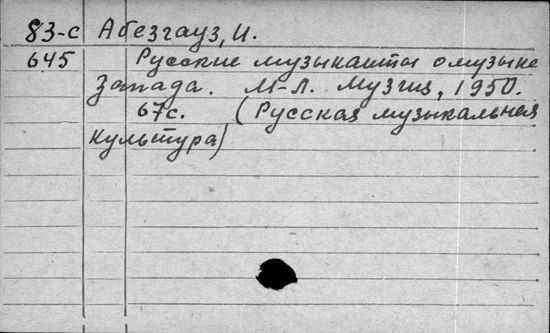 83-с Абезгауз, И.
645 Русские музыканты о музыке
Запада. М-Л. Музгиз, 1950.
67с. (Русская музыкальная
культура)